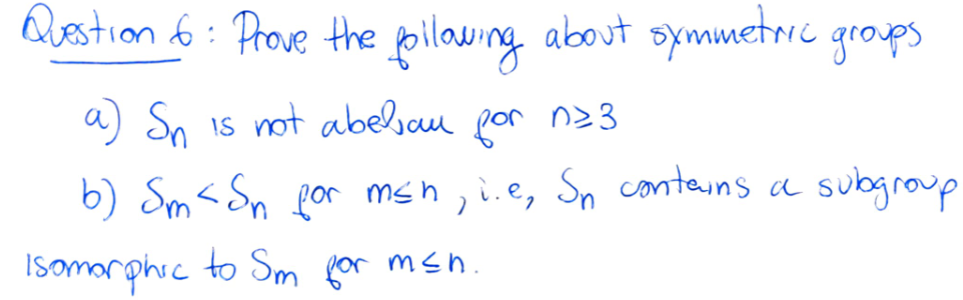 Question 6: Prove the following about symmetric groups
a) Sn is not abelian for n≥3
b) Sm < Sn for m≤n, i.e, Sn contains a subgroup
isomorphic to Sm for m≤n.